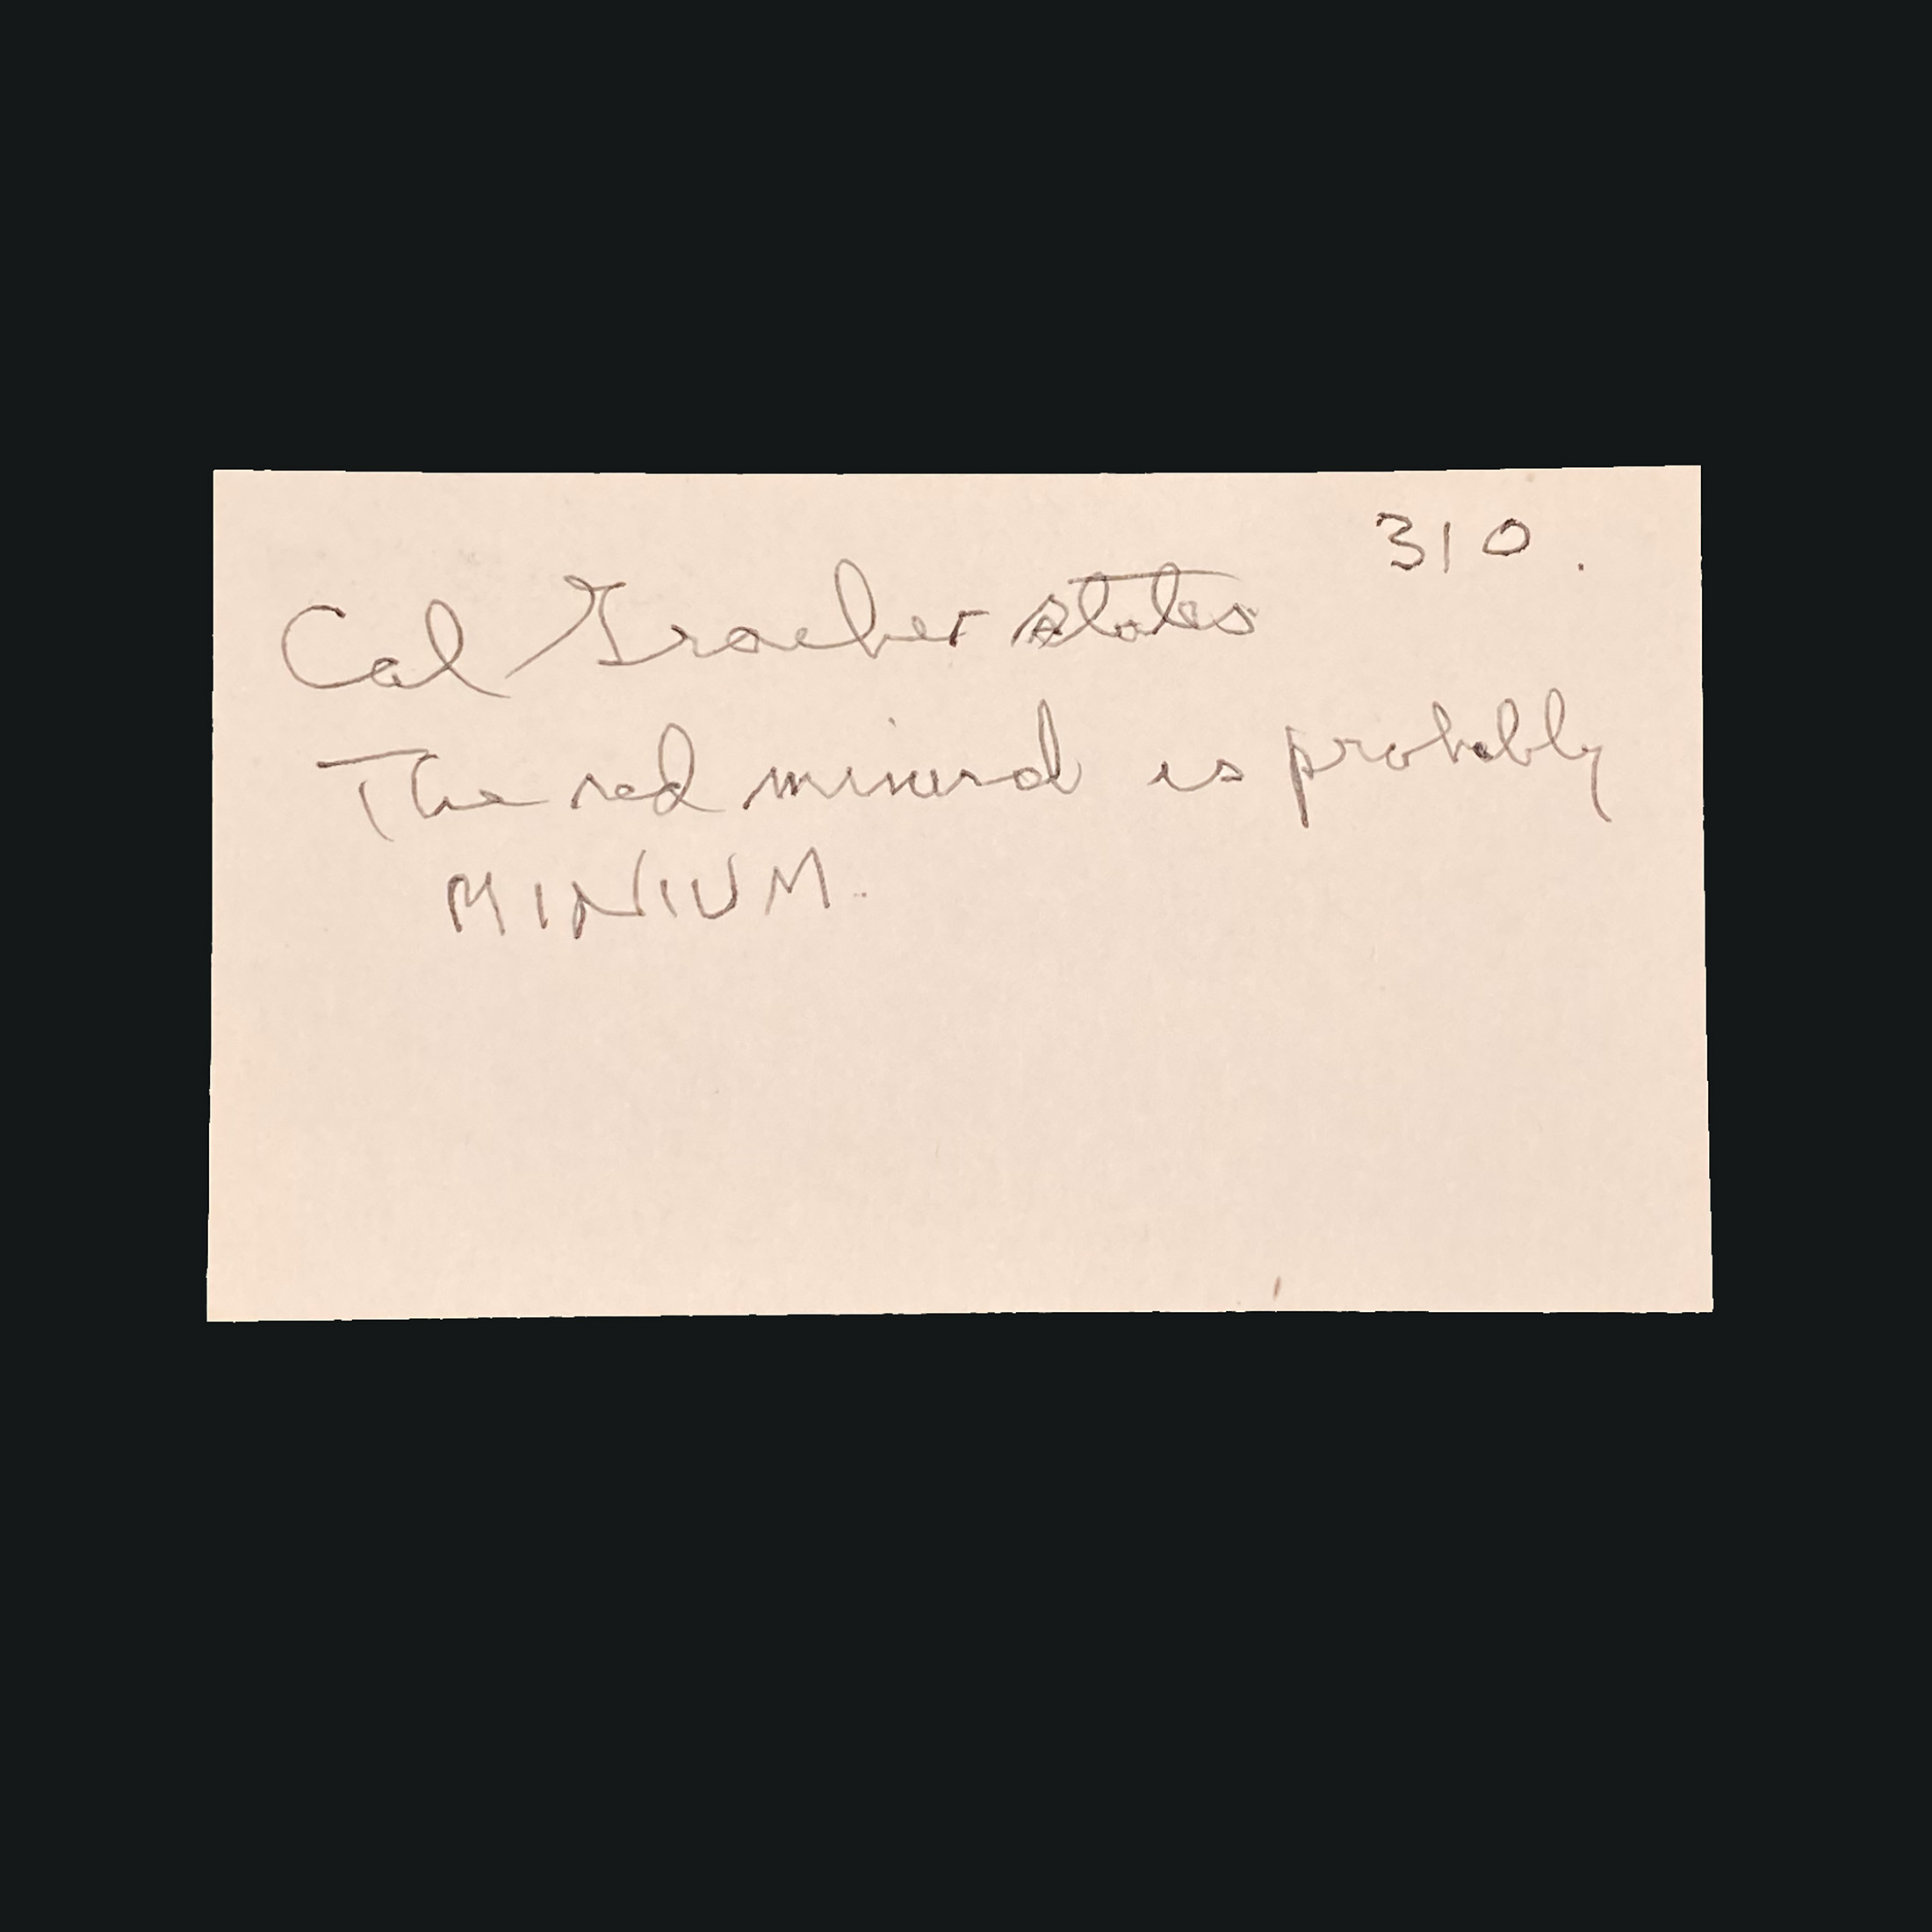 310.
Cal Graeber states
The red mineral is probably
MINIUM.